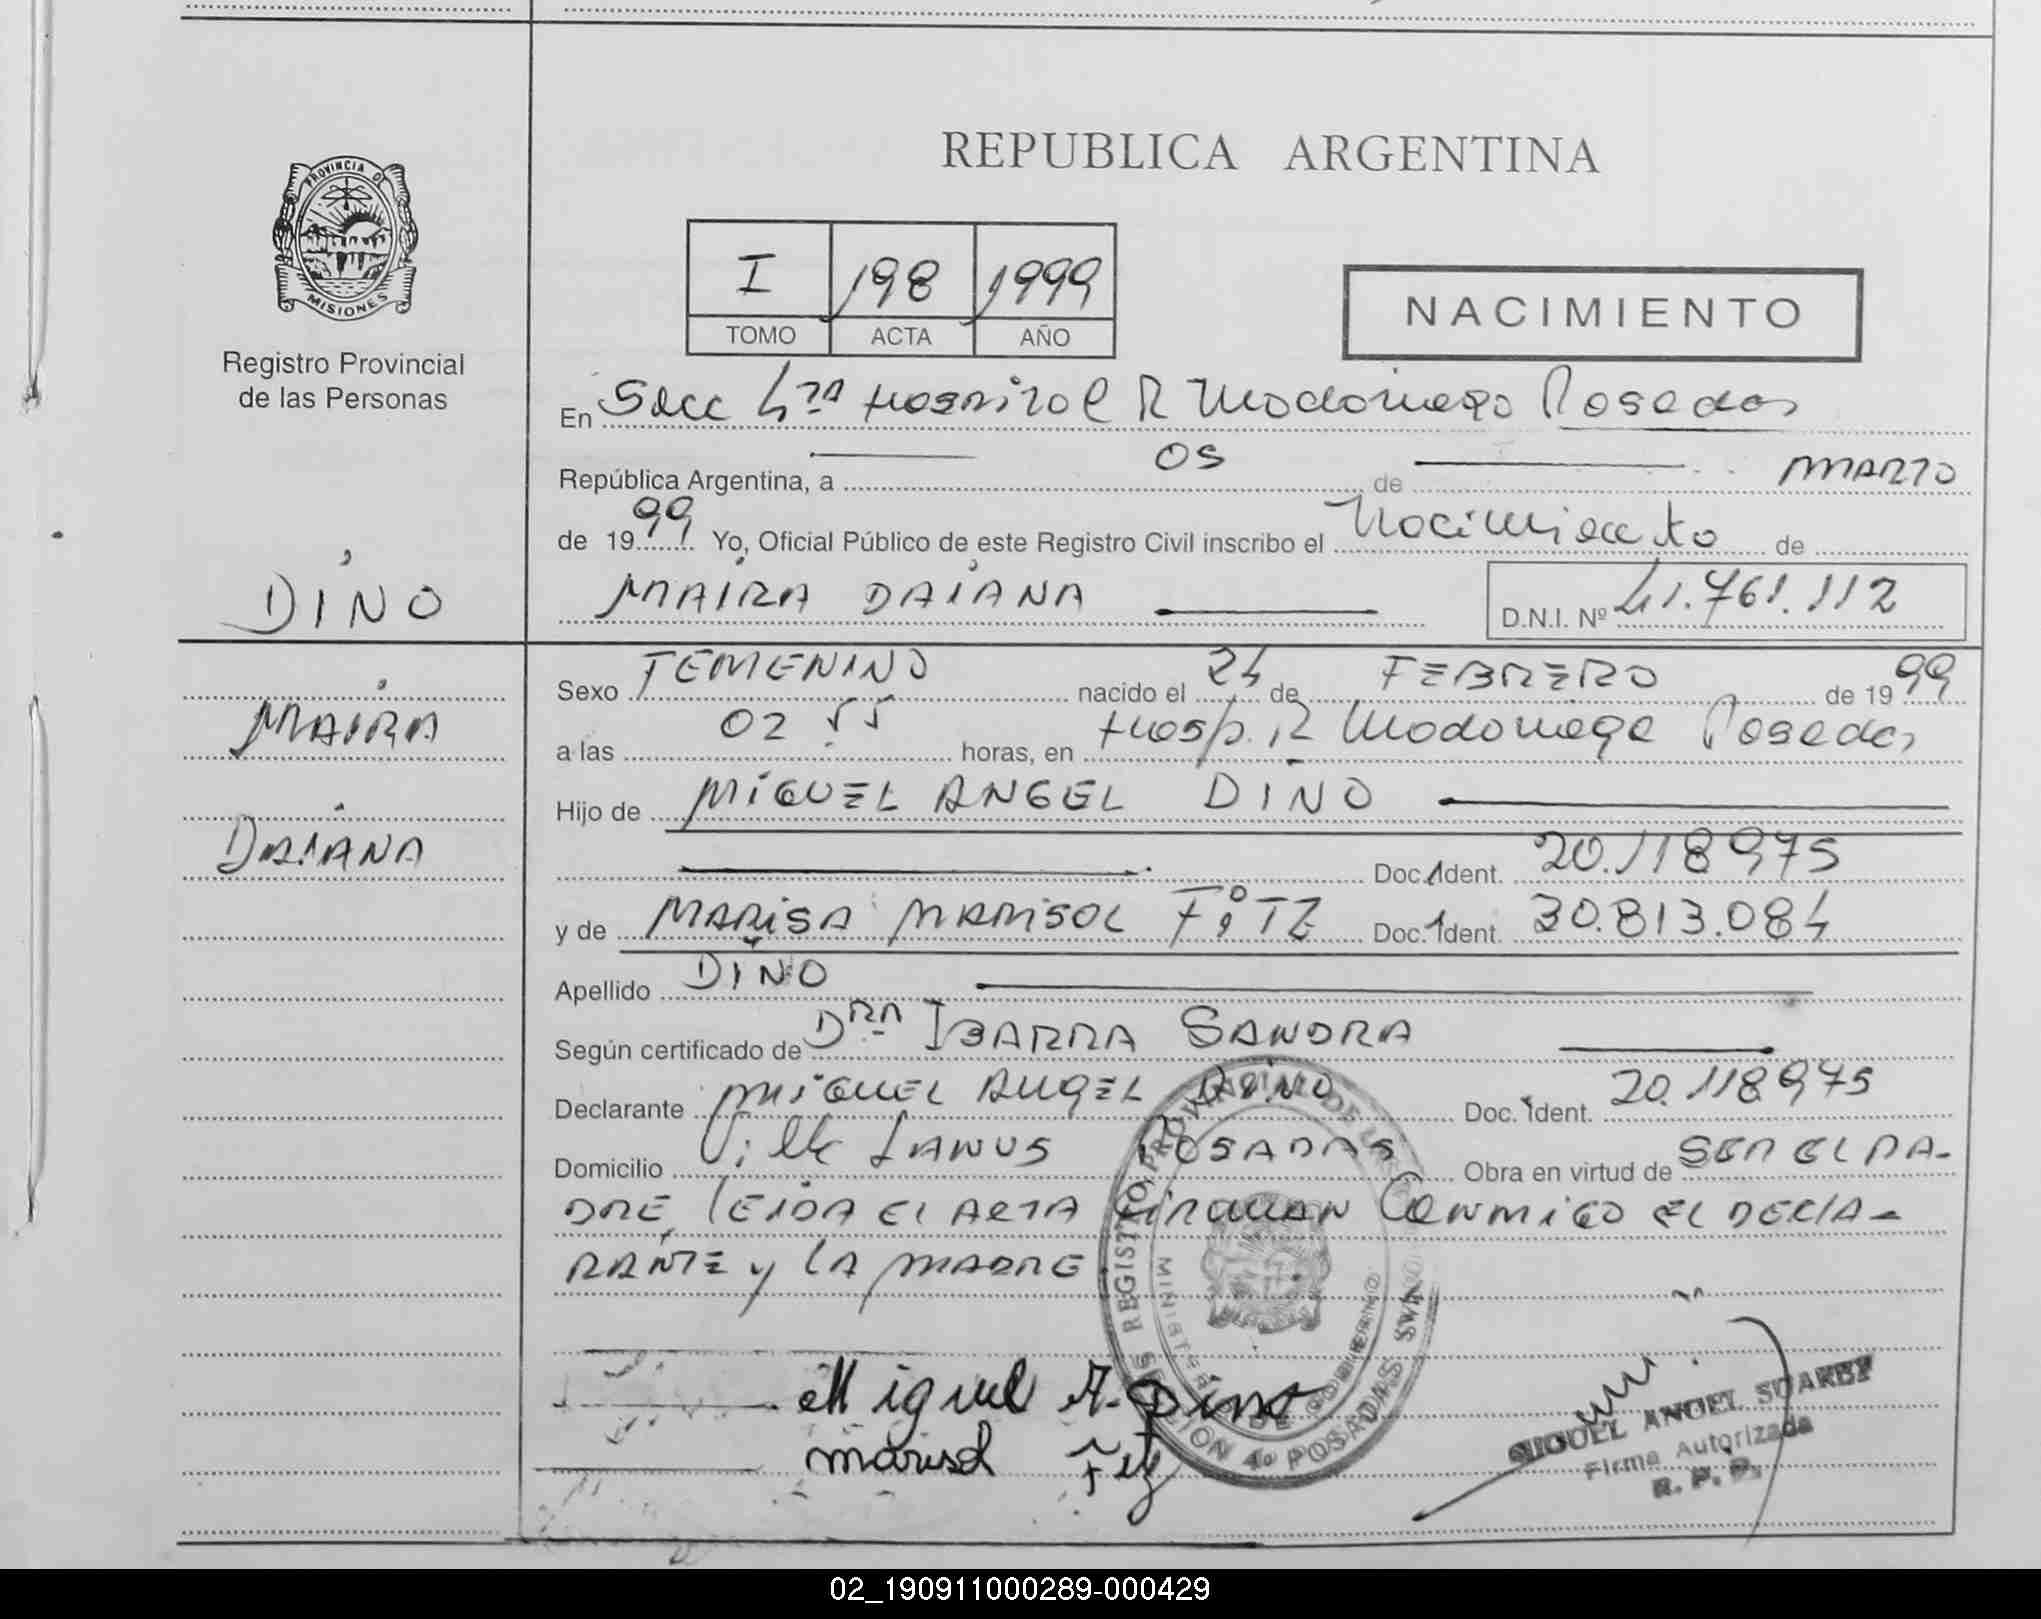 REPUBLICA ARGENTINA
PROVINCIA DE
MISIONES
Registro Provincial
de las Personas
I 198 1999
TOMO ACTA AÑO
NACIMIENTO
En Secc 4ta Hospital R Madariaga Posadas
República Argentina, a 05 de MARZO
de 1999 Yo, Oficial Público de este Registro Civil inscribo el Nacimiento de
MAIRA DAIANA D.N.I. Nº 41.761.112
DINO
MAIRA
DAIANA
Sexo FEMENINO nacido el 24 de FEBRERO de 1999
a las 02 55 horas, en Hosp. R Madariaga Posadas
Hijo de MIGUEL ANGEL DINO
Doc. Ident. 20.118975
y de MARISA MARISOL FITZ Doc. Ident. 30.813.084
Apellido DINO
Según certificado de Dra IBARRA SANDRA
Declarante MIGUEL ANGEL DINO Doc. Ident. 20.118975
Domicilio Villa LANUS POSADAS Obra en virtud de SER EL PA-
DRE, LEIDA EL ACTA FIRMAN CONMIGO EL DECLA-
RANTE y LA MADRE
REGISTRO PROVINCIAL DE
SECCION 4a POSADAS
Miguel A. Dino
marisol
MIGUEL ANGEL SUAREZ
Firma Autorizada
R. P. P.
02_190911000289-000429